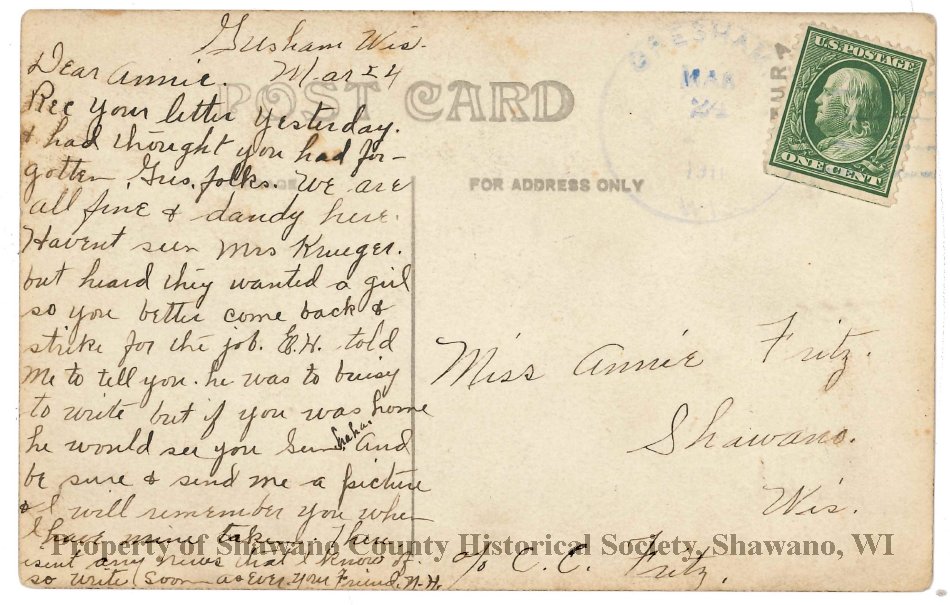 Gresham Wis.
Mar 24
Dear Annie.
Rec your letter yesterday.
& had thought you had for-
gotten Gres. folks. We are
all fine & dandy here.
Havent seen Mrs Krueger.
but heard they wanted a girl
so you better come back &
strike for the job. E.H. told
me to tell you. he was to buisy
to write but if you was home
he would see you Sun. haha. And
be sure & send me a picture
& I will remember you when
I have mine taken. There
isent any news that I know of
so write soon as ever your Friend. N.H.
POST CARD
FOR ADDRESS ONLY
GRESHAM
MAR
24
WIS
U.S. POSTAGE
ONE CENT
Miss Annie Fritz.
Shawano.
Wis.
c/o C.C. Fritz.
Property of Shawano County Historical Society, Shawano, WI